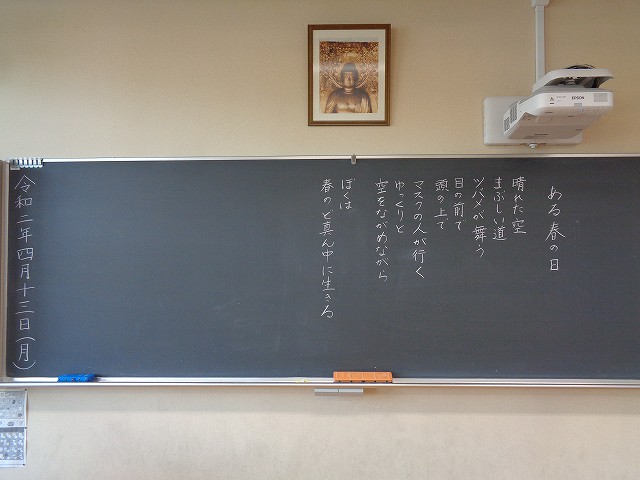 ある春の日
晴れた空
まぶしい道
ツバメが舞う
目の前で
頭の上で
マスクの人が行く
ゆっくりと
空をながめながら
ぼくは
春のど真ん中に生きる
令和二年四月十三日（月）
EPSON